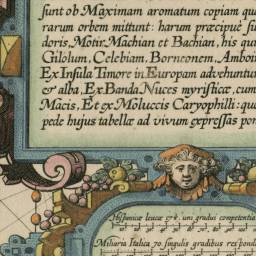 sunt ob Maximam aromatum copiam qua
rarum orbem mittunt: harum præcipuè su
doris, Motir, Machian et Bachian, his qui
Gilolum, Celebiam, Borneonem, Amboin
Ex Insula Timore in Europam advehuntur
& alba, Ex Banda Nuces myristicæ, cum
Macis, Et ex Moluccis Caryophilli: quo
pede hujus tabellæ ad vivum expressas pon
Hispanicæ leucæ uni gradui competentia
Miliaria Italica 70. singulis gradibus respond